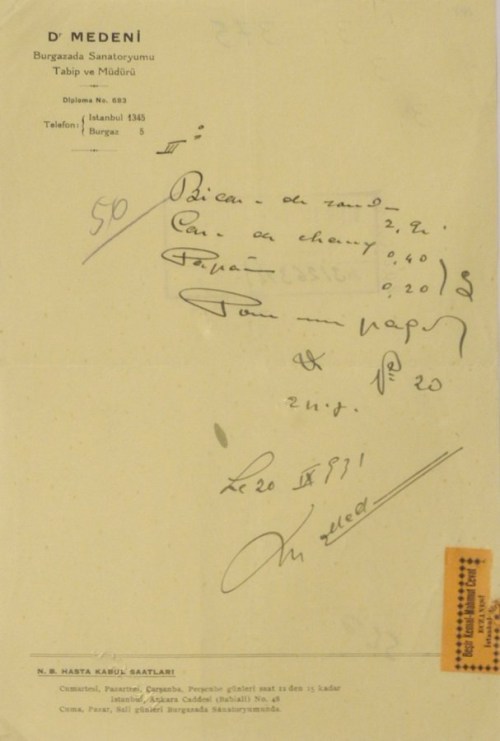 Dr MEDENİ
Burgazada Sanatoryumu
Tabip ve Müdürü
Diploma No. 683
Telefon: Istanbul 1345
Burgaz 5
50
Bicar. de soud
2, gr.
Carb. de chaux
0,40
Papaïne
0,20
Pour un paq.
No 20
2 n. j.
Le 20 IX 931
Beşir Kemal-Mahmut Cevat
N. B. HASTA KABUL SAATLARI
Cumartesi, Pazartesi, Çarşanba, Perşenbe günleri saat 12 den 15 kadar
Istanbul, Ankara Caddesi (Babiali) No. 48
Cuma, Pazar, Sali günleri Burgazada Sanatoryumunda.